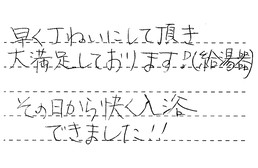 早く丁ねいにして頂き
大満足しております♪(給湯器)
その日から快く入浴
できました!!